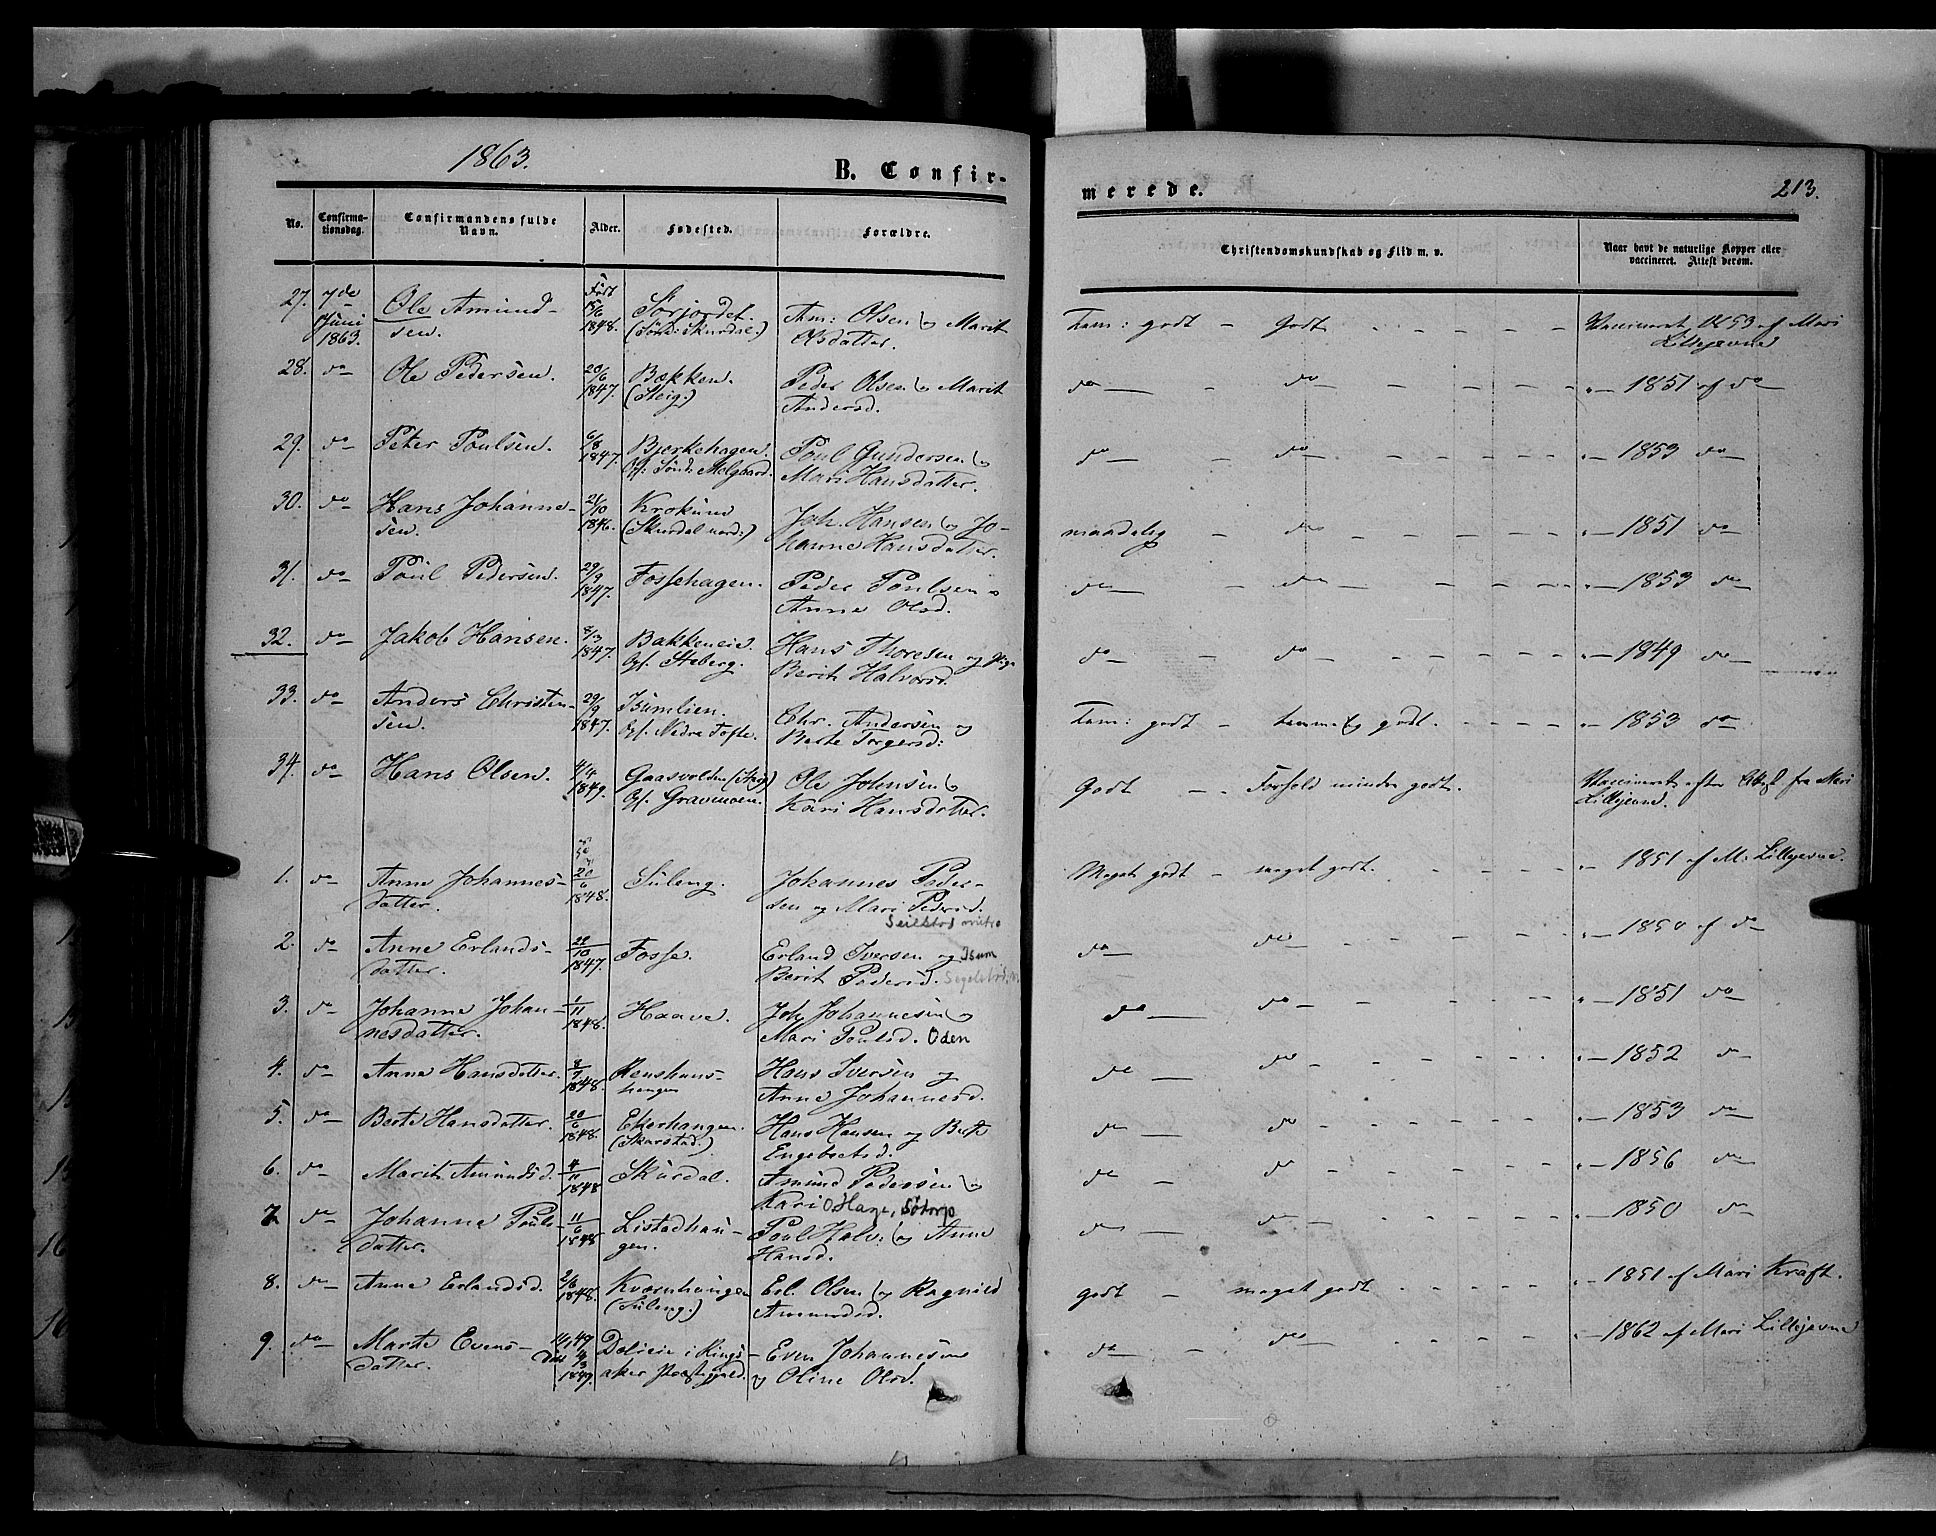 1863.
B. Confir-
merede.
213.
No.
Confirma-
tionsdag.
Confirmandens fulde
Navn.
Alder.
Fødested.
Forældre.
Christendomskundskab og Flid m. v.
Naar havt de naturlige Kopper eller
vaccineret. Attest derom.
27. 7de Juni 1863. Ole Amund-
sen. Født 15/6 1848. Sørjordet. Am: Olsen og Marit
Olsdatter. Tem: godt — Godt — Vaccineret 1853 af Mari
Lillejevne
28. do Ole Pedersen. 20/6 1847. Bækken. Peder Olsen og Marit
(Steig.) Andersd. do — do — " — 1851 af do
29. do Peter Poulsen. 6/8 1847. Bjerkehagen. Poul Gundersen og
Mari Hansdatter. do — do — " — 1853 do
30. do Hans Johanne-
sen. 21/10 1846. Krokund Joh. Hansen og Jo-
hanne Hansdatter. maadelig — do — " — 1851 do
31. do Poul Pedersen. 29/9 1847. Fossehagen. Peder Poulsen o
Anne Olsd. do — do — " — 1853 do
32. do Jakob Hansen. 8/3 1847. Bakkeneie. Hans Thoresen og Pige
Berit Halvorsd. do — do — " — 1849 do
33. do Anders Christen-
sen. 29/9 1847. Isumlien. Chr. Andersen og
Nedre Tofte. Berte Torgersd: Tem: godt — godt. — " — 1853 do
34. do Hans Olsen. 4/4 1849. Gaasvolden Ole Johnsen og
Gravmoen. Kari Hansdatter. Godt — Forhold mindre godt. Vaccineret efter Attest fra Mari
Lillejevne.
1. do Anne Johannes-
datter. 20/6 1848. Suleng. Johannes Peder-
sen og Mari Pedersd. Meget godt — meget godt. — " — 1851 af M: Lillejevne.
2. do Anne Erlands-
datter. 22/10 1847. Fosse. Erland Iversen og Isum
Berit Pedersd. do — do — " — 1850 af do
3. do Johanne Johan-
nesdatter. 1/11 1848. Haave. Joh Johannesen og
Mari Poulsd. Oden do — do — " — 1851 do
4. do Anne Hansdatter. 8/7 1848. Hans Iversen og
Anne Johannesd. do — do — " — 1852 do
5. do Berte Hansdatter. 20/6 1848. Ekerhaugen. Hans Hansen og Berte
(Skarstad.) Engebretsd. do — do — " — 1853 do
6. do Marit Amundsd. 4/11 1848 Skurdal. Amund Pedersen og
Kari O Hage, Sødorp do — do — " — 1856 do
7. do Johanne Pouls-
datter. 11/6 1848 Listadhau-
gen. Poul Halv: og Anne
Hansd. do — do — " — 1850 do
8. do Anne Erlandsd. 2/6 1848. Kværnhaugen Erl. Olsen og Ragnild
(Suleng.) Amundsd. godt — meget godt — " — 1851 af Mari Kraft.
9. do Marte Evens-
datter. 1849. Dalseie i Rings-
aker Præstegjeld. Even Johannesen
og Oline Olsd. do — do — " — 1862 af Mari Lillejevne